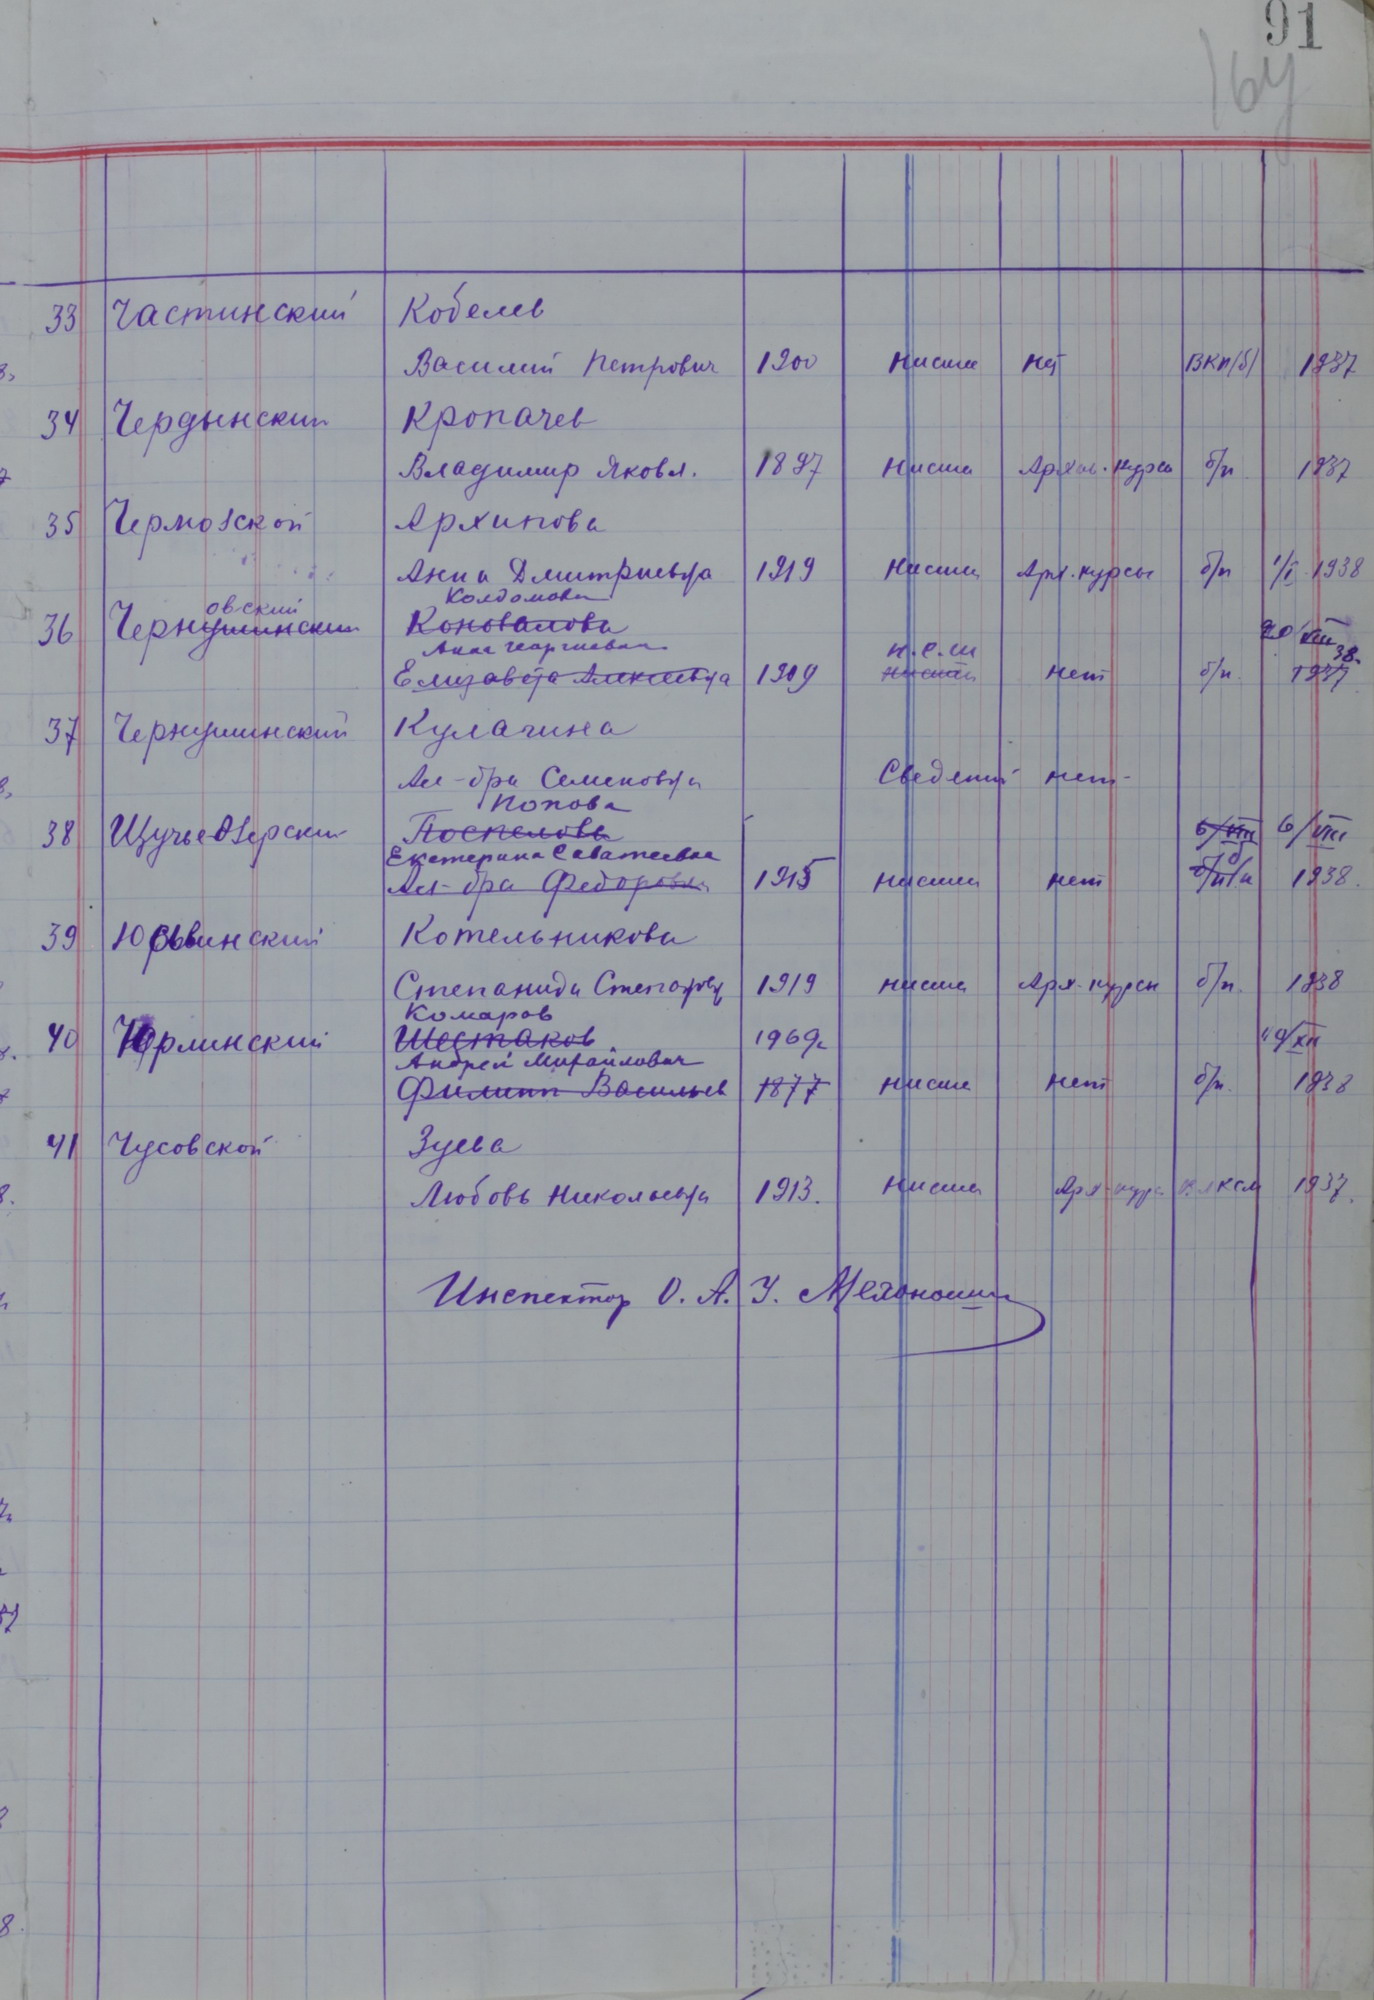 91
164
33 Частинский Кобелев
Василий Петрович 1900 низшее нет ВКП/б/ 1937
34 Чердынский Кропачев
Владимир Яковл. 1897 низшее Архив. курсы б/п 1937
35 Чермозской Архипова
Анна Дмитриевна 1919 низшее Арх. курсы б/п 1/I 1938
овский Колдомова
36 Чернушинский Коновалова 20/XII 38.
Анна Георгиевна н.с.ш
Елизавета Алексеевна 1909 низшее нет б/п. 1937
37 Чернушинский Кулагина
Ал-дра Семеновна Сведений нет
Попова
38 Щучье-Озерский Поспелова 6/VIII 6/VIII
Екатерина Саватеевна
Ал-дра Федоровна 1915 низшее нет б/п 1938.
39 Юсьвинский Котельникова
Степанида Степановн 1919 низшее Арх. курсы б/п. 1938
Комаров
40 Юрлинский Шестаков 1909г.
Андрей Михайлович
Филипп Васильев 1877 низшее нет б/п. 1938
41 Чусовской Зуева
Любовь Николаевна 1913. низшее Арх. курс ВЛКСМ 1937.
Инспектор О. А. У. Мехоношин